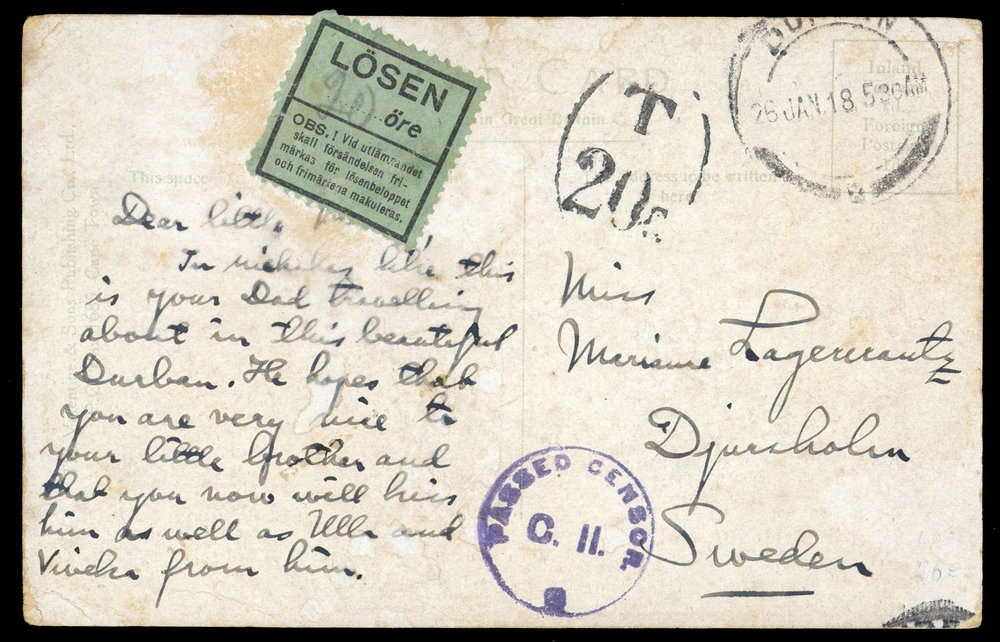 LÖSEN
20
öre
OBS.! Vid utlämnandet
skall försändelsen fri-
märkas för lösenbeloppet
och frimärkena makuleras.
CARD
in Great Britain
T
20
26 JAN. 18 5 30 AM
Inland
Foreign
This space
here
Dear little
In rickshas like this
is your Dad travelling
about in this beautiful
Durban. He hopes that
you are very nice to
your little brother and
that you now will kiss
him as well as Ulla and
Viveka from him.
Miss
Marianne Lagercrantz
Djursholm
Sweden
PASSED CENSOR
C. 11.